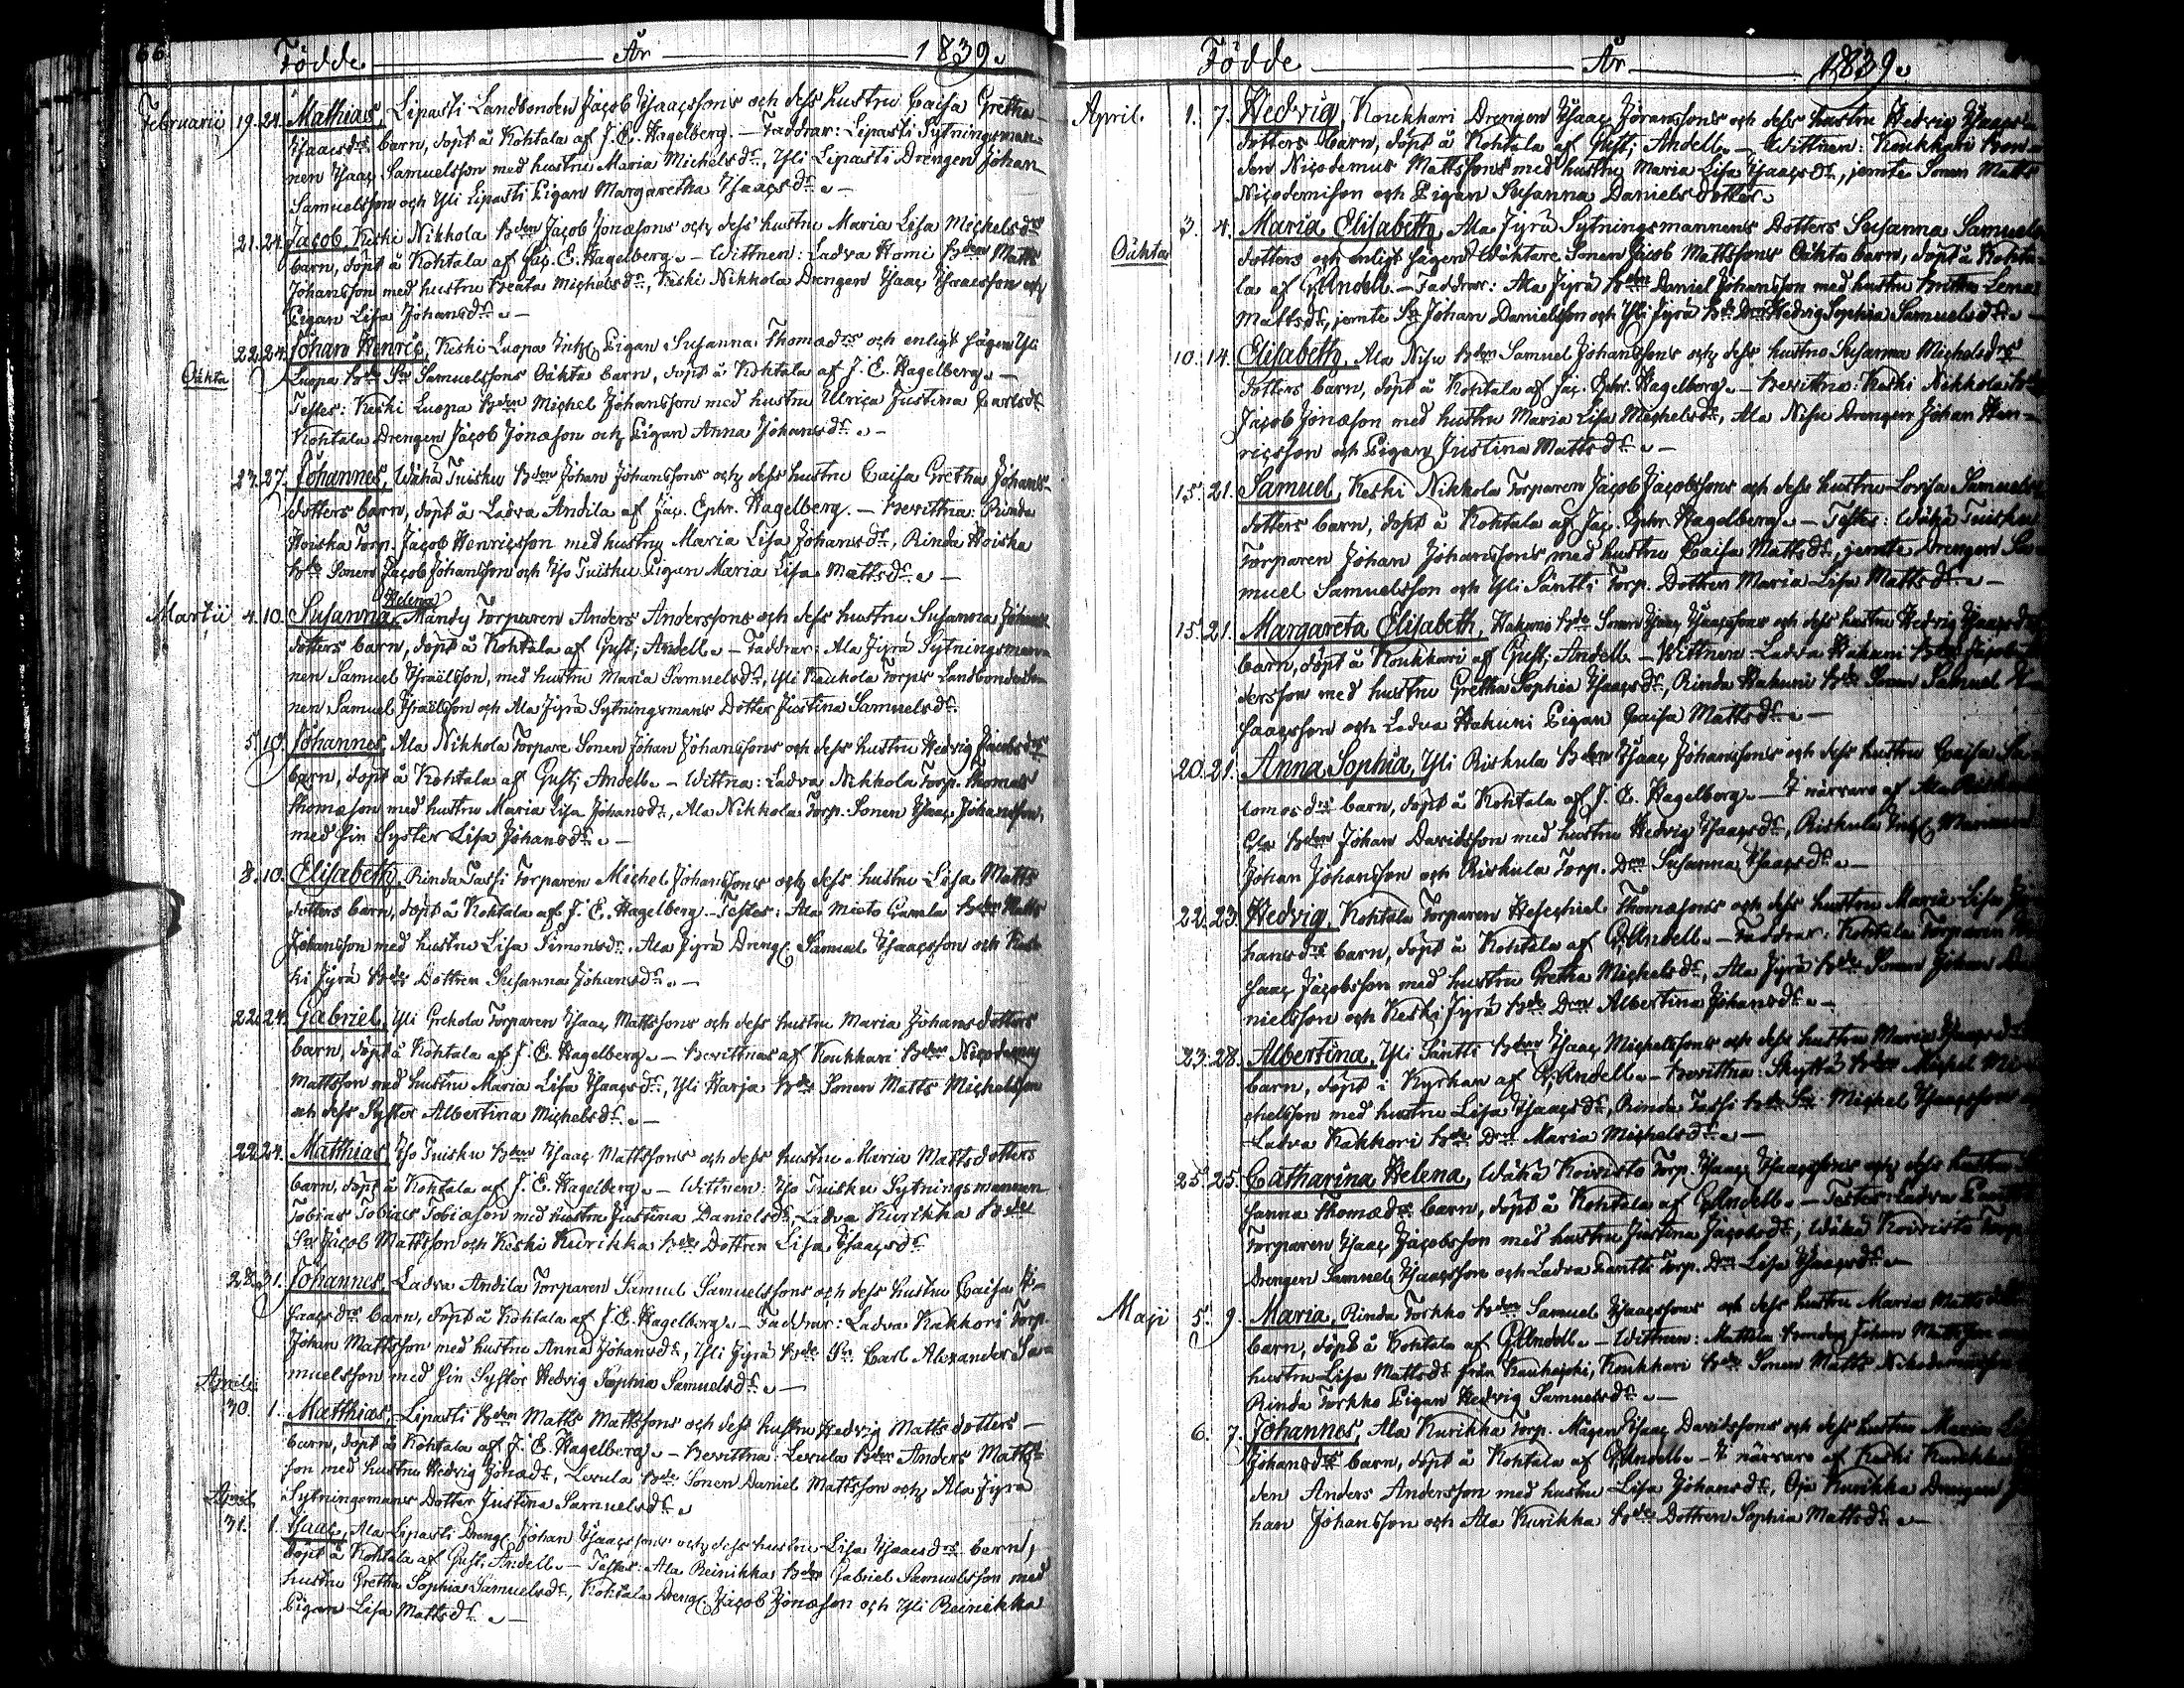 66 Födde År 1839.
Februarii 19. 24. Mathias, Lipasti Landbonden Jacob Isaacssons och dess hustru Caisa Gretha
Isaacsdrs barn, döpt å Kohtala af J. E. Hagelberg. – Faddrar: Lipasti Sytningsman-
nen Isaac Samuelsson med hustru Maria Michelsdr, Yli Lipasti Drengen Johan
Samuelsson och Yli Lipasti Pigan Margaretha Isaacsdr. –
21. 24. Jacob, Keski Nikkola Bden Jacob Jonæsons och dess hustru Maria Lisa Michelsdrs
barn, döpt å Kohtala af Jac. E. Hagelberg. – Wittnen: Ladva Homi Bden Matts
Johansson med hustru Beata Michelsdr, Keski Nikkola Drengen Isaac Isaacsson och
Pigan Lisa Johansdr. –
22. 24. Johan Henric, Keski Luopa Inhs Pigan Susanna Thomædrs och enligt sägen Yli
Oäkta Luopa Bde Sn Samuelssons Oäkta barn, döpt å Kohtala af J. E. Hagelberg. –
Testes: Keski Luopa Bden Michel Johansson med hustru Ulrica Justina Carlsdr
Kohtala Drengen Jacob Jonæson och Pigan Anna Johansdr. –
23. 27. Johannes, Wähä Tuisku Bden Johan Johanssons och dess hustru Caisa Gretha Johans-
dotters barn, döpt å Ladva Andila af Jac. Ephr. Hagelberg. – Bevittna: Rinda
Hoiska Torp. Jacob Henricsson med hustru Maria Lisa Johansdr, Rinda Hoiska
Bde Sonen Jacob Johansson och Iso Tuisku Pigan Maria Lisa Mattsdr. –
Helena
Martii 4. 10. Susanna, Mändy Torparen Anders Anderssons och dess hustru Susanna Johans
dotters barn, döpt å Kohtala af Gust; Andell. – Faddrar: Ala Jyrä Sytningsman
nen Samuel Israëlsson, med hustru Maria Samuelsdr, Yli Kauhola Torps Landbonde
nen Samuel Israëlsson och Ala Jyrä Sytningsmans Dotter Justina Samuelsdr.
5. 10. Johannes, Ala Nikkola Torpare Sonen Johan Johanssons och dess hustru Hedvig Jacobsdrs
barn, döpt å Kohtala af Gust; Andell. – Wittna: Ladva Nikkola Torp. Thomas
Thomæson med hustru Maria Lisa Johansdr, Ala Nikkola Torp. Sonen Isaac Johansson,
med sin Syster Lisa Johansdr. –
8. 10. Elisabeth, Rinda Tassi Torparen Michel Johanssons och dess hustru Lisa Matts
dotters barn, döpt å Kohtala af J. E. Hagelberg. – Testes: Ala Mieto Gamla Bden Matts
Johansson med hustru Lisa Simonsdr. Ala Jyrä Dreng. Samuel Isaacsson och Kes-
ki Jyrä Bde Dottren Susanna Johansdr. –
22. 24. Gabriel, Yli Grekola Torparen Isaac Mattssons och dess hustru Maria Johansdotters
barn, döpt å Kohtala af J. E. Hagelberg. – Bevittnas af Koukkari Bden Nicodemus
Mattsson med hustru Maria Lisa Isaacsdr, Yli Harja Bde Sonen Matts Michelsson
och dess Syster Albertina Michelsdr. –
22. 24. Matthias, Iso Tuisku Bden Isaac Mattssons och dess hustru Maria Mattsdotters
barn, döpt å Kohtala af J. E. Hagelberg. – Wittnen: Iso Tuisku Sytningsmannen
Tobias Tobias Tobiæson med hustru Justina Danielsdr, Ladva Kurikka Bde
Sn Jacob Mattsson och Keski Kurikka Bde Dottren Lisa Isaacsdr
28. 31. Johannes, Ladva Andila Torparen Samuel Samuelssons och dess hustru Caisa I-
saacsdrs barn, döpt å Kohtala af J. E. Hagelberg. – Faddrar: Ladva Kakkori Torp.
Johan Mattsson med hustru Anna Johansdr, Yli Jyrä Bde Sn Carl Alexander Sa-
muelsson med sin Syster Hedvig Sophia Samuelsdr. –
Aprilis
30. 1. Matthias, Lipasti Bden Matts Mattssons och dess hustru Hedvig Mattsdotters –
barn, döpt å Kohtala af J. E. Hagelberg. – Bevittna: Levula Bden Anders Matts-
son med hustru Hedvig Jonædr, Levula Bde Sonen Daniel Mattsson och Ala Jyrä
Sytningsmans Dotter Justina Samuelsdr.
April
31. 1. Isaac, Ala Lipasti Dreng. Johan Isaacssons och dess hustru Lisa Isaacsdrs barn,
döpt å Kohtala af Gust. Andell. – Testes: Ala Reinikka Bden Gabriel Samuelsson med
hustru Gretha Sophia Samuelsdr, Kohtala Dreng. Jacob Jonæson och Yli Reinikka
Pigan Lisa Mattsdr. –
Födde År 1839.
April. 1. 7. Hedvig, Koukkari Drengen Isaac Jöranssons och dess hustru Hedvig Isaacs-
dotters barn, döpt å Kohtala af Gust; Andell. – Wittnen: Koukkari Bon-
den Nicodemus Mattssons med hustru Maria Lisa Isaacsdr, jemte Sonen Matts
Nicodemison och Pigan Susanna Daniels dotter.
3. 4. Maria Elisabeth, Ala Jyrä Sytningsmannens Dotters Susanna Samuels
Oäkta dotters och enligt sägen Wäktare Sonen Jacob Mattssons Oäkta barn, döpt å Kohta-
la af G. Andell. – Faddrar: Ala Jyrä Bden Daniel Johansson med hustru Britta Lena
Mattsdr, jemte Sn Johan Danielsson och Yli Jyrä Bde Drn Hedvig Sophia Samuelsdr. –
10. 14. Elisabeth, Ala Nisu Bden Samuel Johanssons och dess hustru Susanna Michelsdrs
dotters barn, döpt å Kohtala af Jac. Ephr. Hagelberg. – Bevittna: Keski Nikkola
Jacob Jonæson med hustru Maria Lisa Michelsdr, Ala Nisu Drengen Johan Hen-
ricsson och Pigan Justina Mattsdr. –
15. 21. Samuel, Keski Nikkola Torparen Jacob Jacobssons och dess hustru Lovisa Samuels
dotters barn, döpt å Kohtala af Jac. Ephr. Hagelberg. – Testes: Wähä Tuisku
Torparen Johan Johanssons med hustru Caisa Mattsdr, jemte Drengen Sa
muel Samuelsson och Yli Säntti Torp. Dottren Maria Lisa Mattsdr. –
15. 21. Margareta Elisabeth, Hakuni Bde Sonen Isaac Isaacssons och dess hustru Hedvig Isaacsdrs
barn, döpt å Koukkari af Gust; Andell. – Wittnen: Ladva Hakuni Bden Jacob
dersson med hustru Gretha Sophia Isaacsdr, Rinda Hakuni Bde Sonen Samuel I-
saacsson och Ladva Hakuni Pigan Caisa Mattsdr. –
20. 21. Anna Sophia, Yli Riskula Bden Isaac Johanssons och dess hustru Caisa Sa
lomosdrs barn, döpt å Kohtala af J. E. Hagelberg. – I närvaro af Ala Riskula
Bden Johan Davidsson med hustru Hedvig Isaacsdr, Riskula Inhs
Johan Johansson och Riskula Torp. Drn Susanna Isaacsdr. –
22. 23. Hedvig, Kohtala Torparen Hesechiel Thomæsons och dess hustru Maria Lisa Jo
hansdrs barn, döpt å Kohtala af G. Andell. – Faddrar: Kohtala Torparen
saac Jacobsson med hustru Gretha Michelsdr, Ala Jyrä Bde Sonen Johan Da
nielsson och Keski Jyrä Bde Drn Albertina Johansdr. –
23. 28. Albertina, Yli Säntti Bden Isaac Michelssons och dess hustru Maria Isaacsdrs
barn, döpt i Kyrkan af G. Andell. – Bevittna: Skyttä Bden Michel Mi
chelsson med hustru Lisa Isaacsdr, Rinda Tassi Bde Sn Michel Isaacsson
Ladva Kakkori Bde Drn Maria Michelsdr. –
25. 25. Catharina Helena, Wähä Koivisto Torp. Isaac Isaacssons och dess hustru
sanna Thomædrs barn, döpt å Kohtala af G. Andell. – Testes: Ladva
Torparen Isaac Jacobsson med hustru Justina Jacobsdr, Wähä Koivisto Torp.
Drengen Samuel Isaacsson och Ladva Pantti Torp. Drn Lisa Isaacsdr. –
Maji 5. 9. Maria, Rinda Torkko Bden Samuel Isaacssons och dess hustru Maria Matts
barn, döpt å Kohtala af G. Andell. – Wittnen: Mattila Bonden Johan Mattsson
hustru Lisa Mattsdr från Kauhajoki, Koukkari Bde Sonen Matts Nikodemusson
Rinda Torkko Pigan Hedvig Samuelsdr. –
6. 7. Johannes, Ala Kurikka Torp. Mågen Isaac Davidssons och dess hustru Maria
Johansdrs barn, döpt å Kohtala af G. Andell. – I närvaro af Keski Kurikka
den Anders Andersson med hustru Lisa Johansdr, Oja Kurikka Drengen Jo
han Johansson och Ala Kurikka Bde Dottren Sophia Mattsdr. –